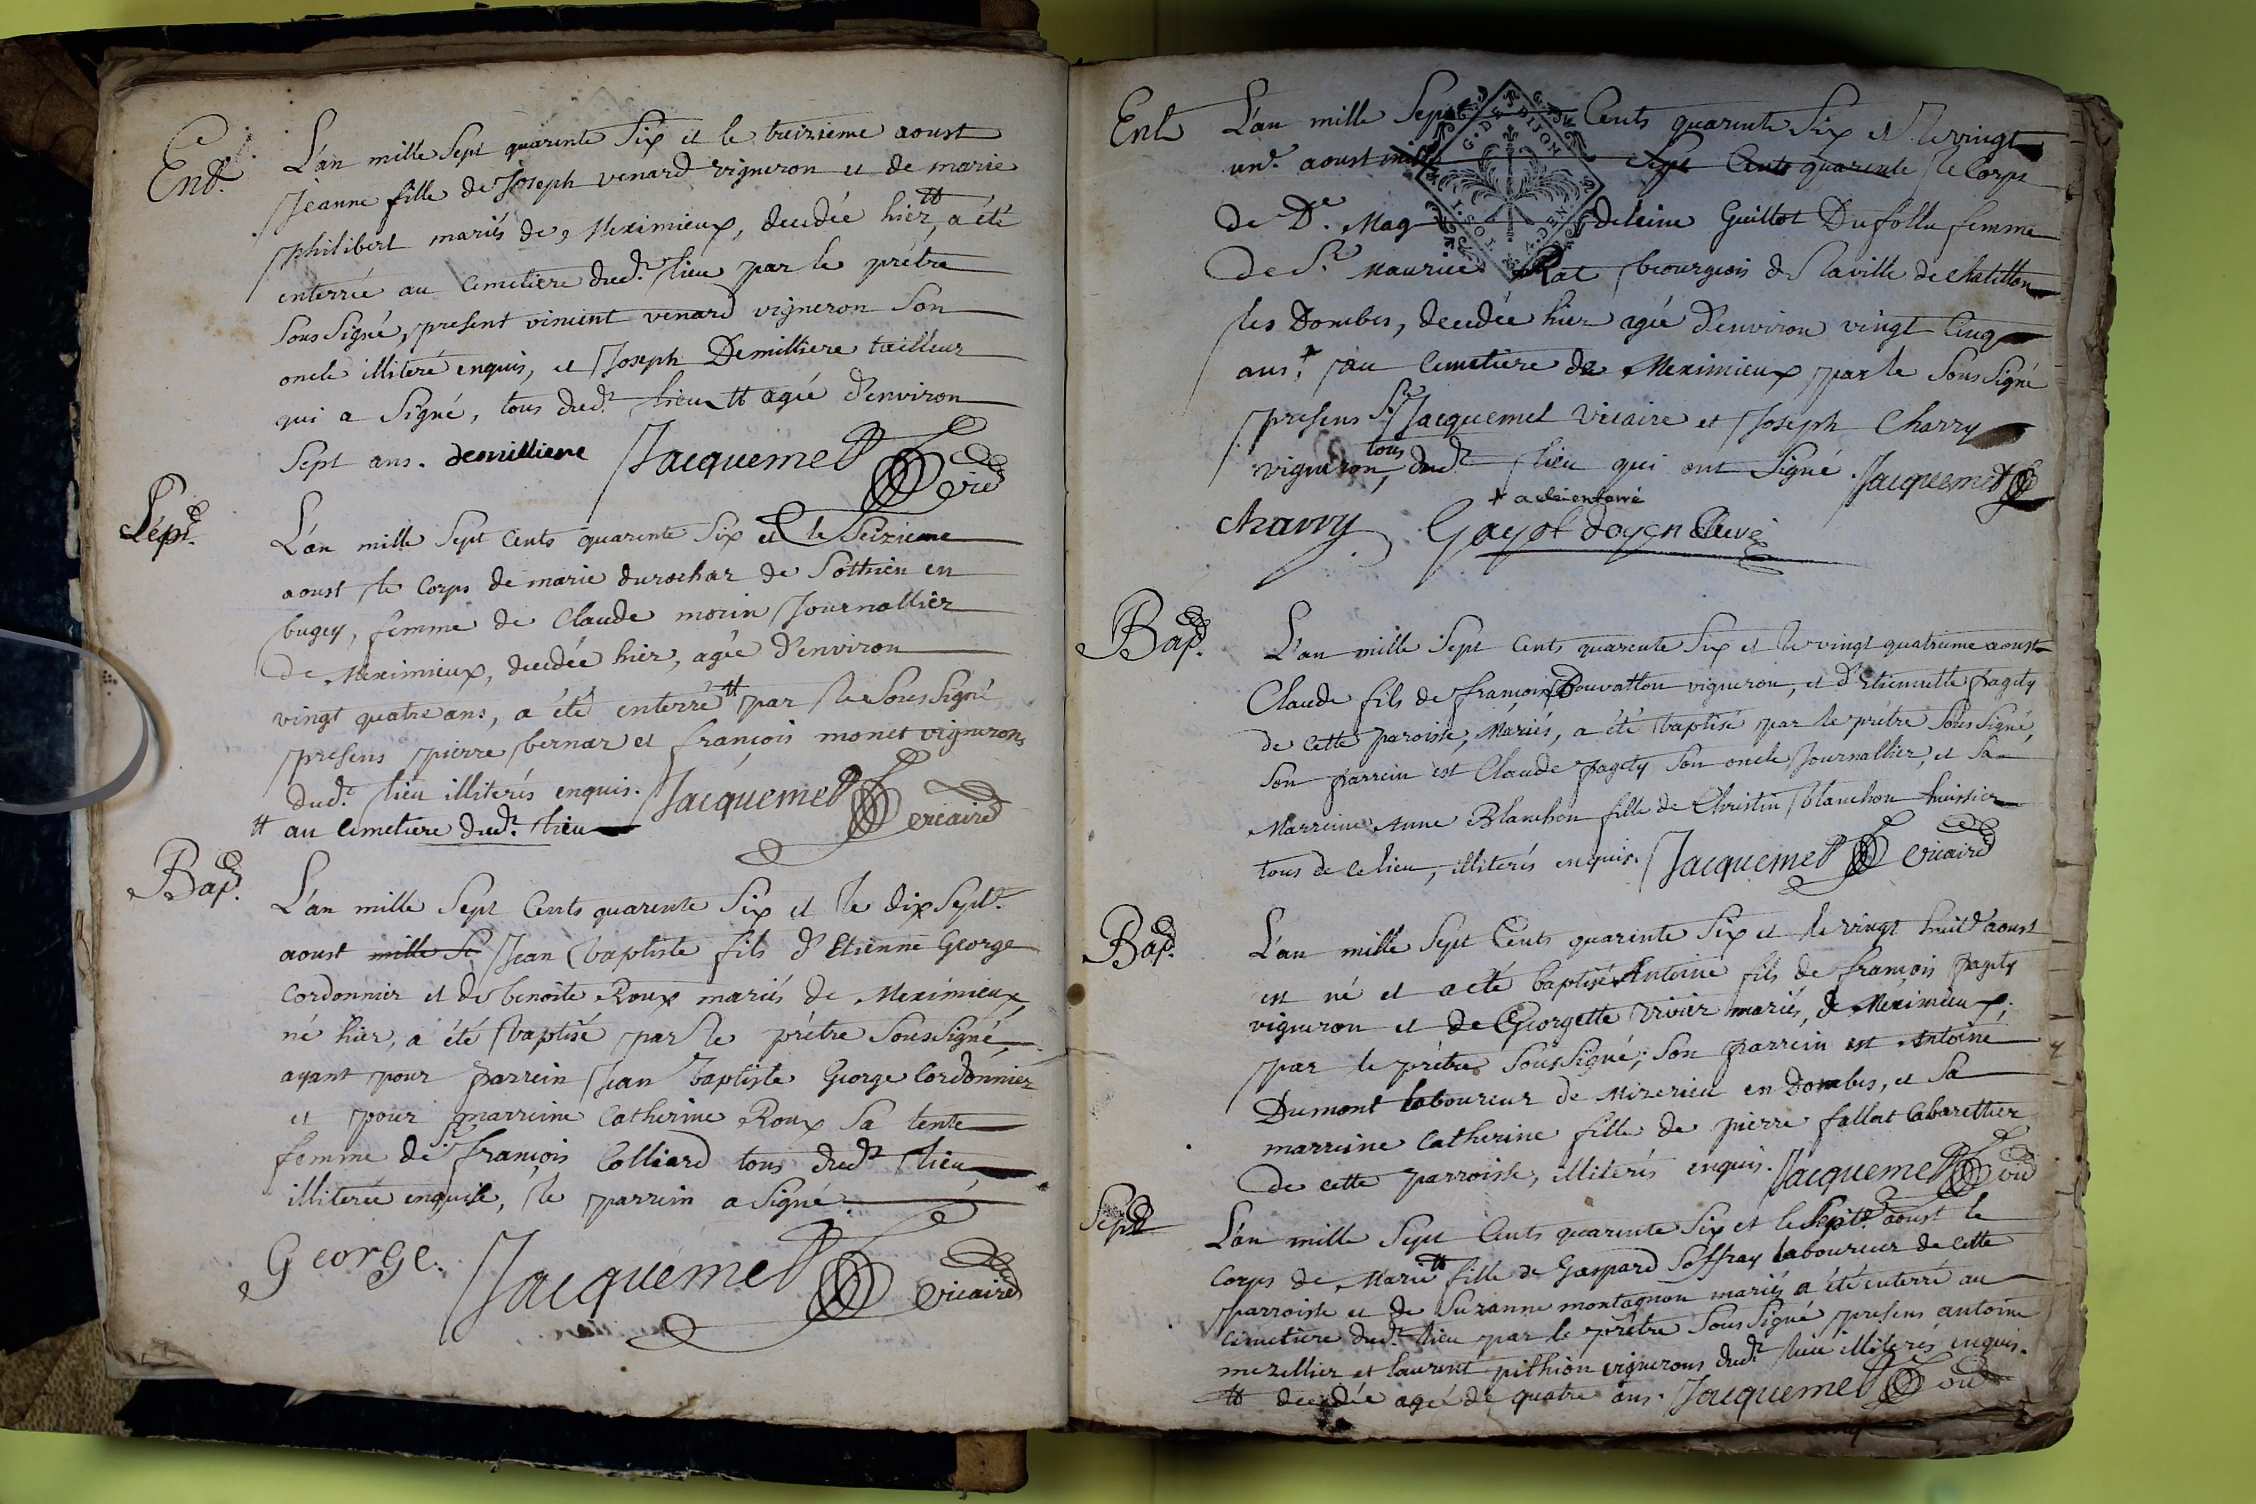 Ent.
L'an mille Sept quarente Six et le treizieme aoust
Jeanne fille de Joseph venard vigneron et de marie
philibert mariés de Meximieux, decedée hier, # a été
enterrée au Cimetiere dud.t lieu par le prétre
Sous Signé, present vincent venard vigneron Son
oncle illiteré enquis, et Joseph Demilliere tailleur
qui a Signé, tous dud.t lieu # agée d'environ
Sept ans. demilliere Jacquemet vic.
Sépt.
L'an mille Sept Cents quarente Six et le Seizieme
aoust le Corps de marie durochar de Sothien en
bugey, femme de Claude morin Journallier
de Meximieux, decedée hier, agée d'environ
vingt quatre ans, a été enterré # par le Sous Signé
presens pierre bernar et françois monet vignerons
dud.t lieu illiterés enquis. Jacquemet vicaire
# au Cimetiere dud.t lieu
Bap.
L'an mille Sept Cents quarente Six et le dix Sept.e
aoust mille Se Jean baptiste fils d'Etienne George
Cordonnier et de benoite Roux mariés de Meximieux
né hier, a été baptisé par le prétre Sous Signé,
ayant pour parrein Jean baptiste George Cordonnier
et pour marreine Catherine Roux Sa tente
femme de S.r françois Colliard tous dud.t lieu
illiterée enquise, le parrein a Signé.
George. Jacquemet vicaire
Ent
G. DE DIJON
L'an mille Sept Cents quarente Six et le vingt
un.e aoust mille Sept Cents quarente le Corps
de D.e Magdeleine Guillot Dufollu femme
de S.r Maurice Rat bourgeois de la ville de Chatillon
les Dombes, decedée hier agée d'environ vingt Cinq
ans, + au Cimetiere de Meximieux par le Sous Signé
presens S.r Jacquemet Vicaire et Joseph Charry
vigneron, tous dud.t lieu qui ont Signé. Jacquemet
+ a été enterré
charry Gayot doyen Curé
Bap.
L'an mille Sept Cents quarente Six et le vingt quatrieme aoust
Claude fils de françois Bouvatton vigneron, et d'Etiennette pagety
de Cette paroisse, Mariés, a été baptisé par le prétre Sous Signé,
Son parrein est Claude pagety Son oncle Journallier, et Sa
Marreine Anne Blanchon fille de Christin blanchon huissier
tous de Ce lieu, illiterés enquis. Jacquemet vicaire
Bap.
L'an mille Sept Cents quarente Six et le vingt huit.e aoust
est né et a été baptisé Antoine fils de françois pagety
vigneron et de Georgette vivier mariés, de Meximieux,
par le prétre Sous Signé; Son parrein est Antoine
Dumont laboureur de Mizerieu en Dombes, et Sa
marreine Catherine fille de pierre fallat Cabarettier
de Cette parroisse, illiterés enquis. Jacquemet vic
Sept
L'an mille Sept Cents quarente Six et le Sept.e aoust le
Corps de Marie # fille de Gaspard Soffray laboureur de Cette
parroisse et de Suzanne montagnon mariés a été enterré au
Cimetiere dud.t lieu par le prétre Sous Signé presens antoine
mezellier et laurent pithion vignerons dud.t lieu illiterés enquis.
# decedée agée de quatre ans. Jacquemet vic